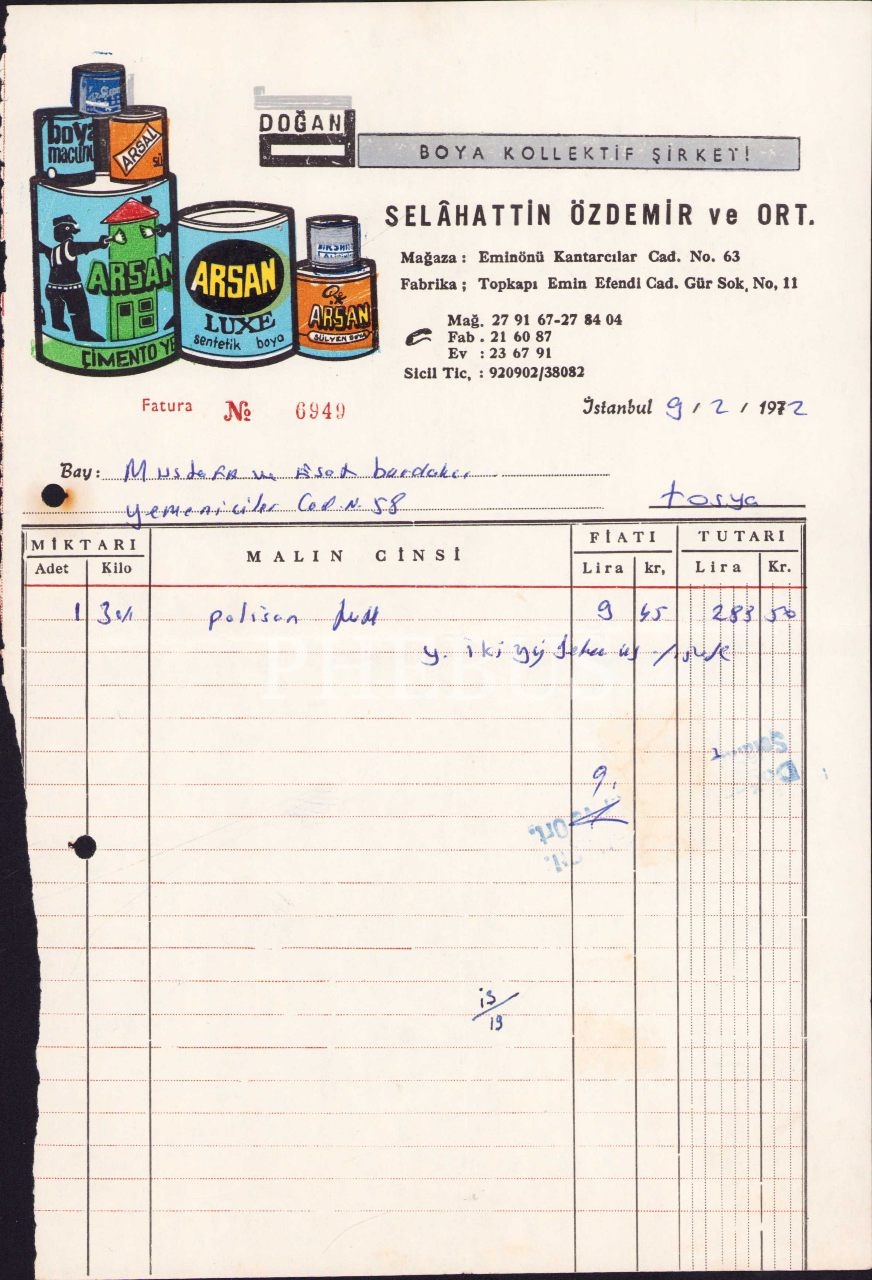 boya
macunu
ARSAL
ARSAN
ÇİMENTO
ARSAN
LUXE
sentetik boya
ARSAN
SÜLYEN BOYA
DOĞAN
BOYA KOLLEKTİF ŞİRKETİ
SELÂHATTİN ÖZDEMİR ve ORT.
Mağaza : Eminönü Kantarcılar Cad. No. 63
Fabrika ; Topkapı Emin Efendi Cad. Gür Sok, No, 11
Mağ. 27 91 67-27 84 04
Fab . 21 60 87
Ev : 23 67 91
Sicil Tic, : 920902/38082
Fatura № 6949
İstanbul 9 / 2 / 1972
Bay: Mustafa ve Esat bardakcı
yemeniciler Cad. N. 58 tosya
MİKTARI MALIN CİNSİ FİATI TUTARI
Adet Kilo Lira kr, Lira Kr.
1 polisan 9 45 283 50
y. iki yüz
9
Ort.
15/19